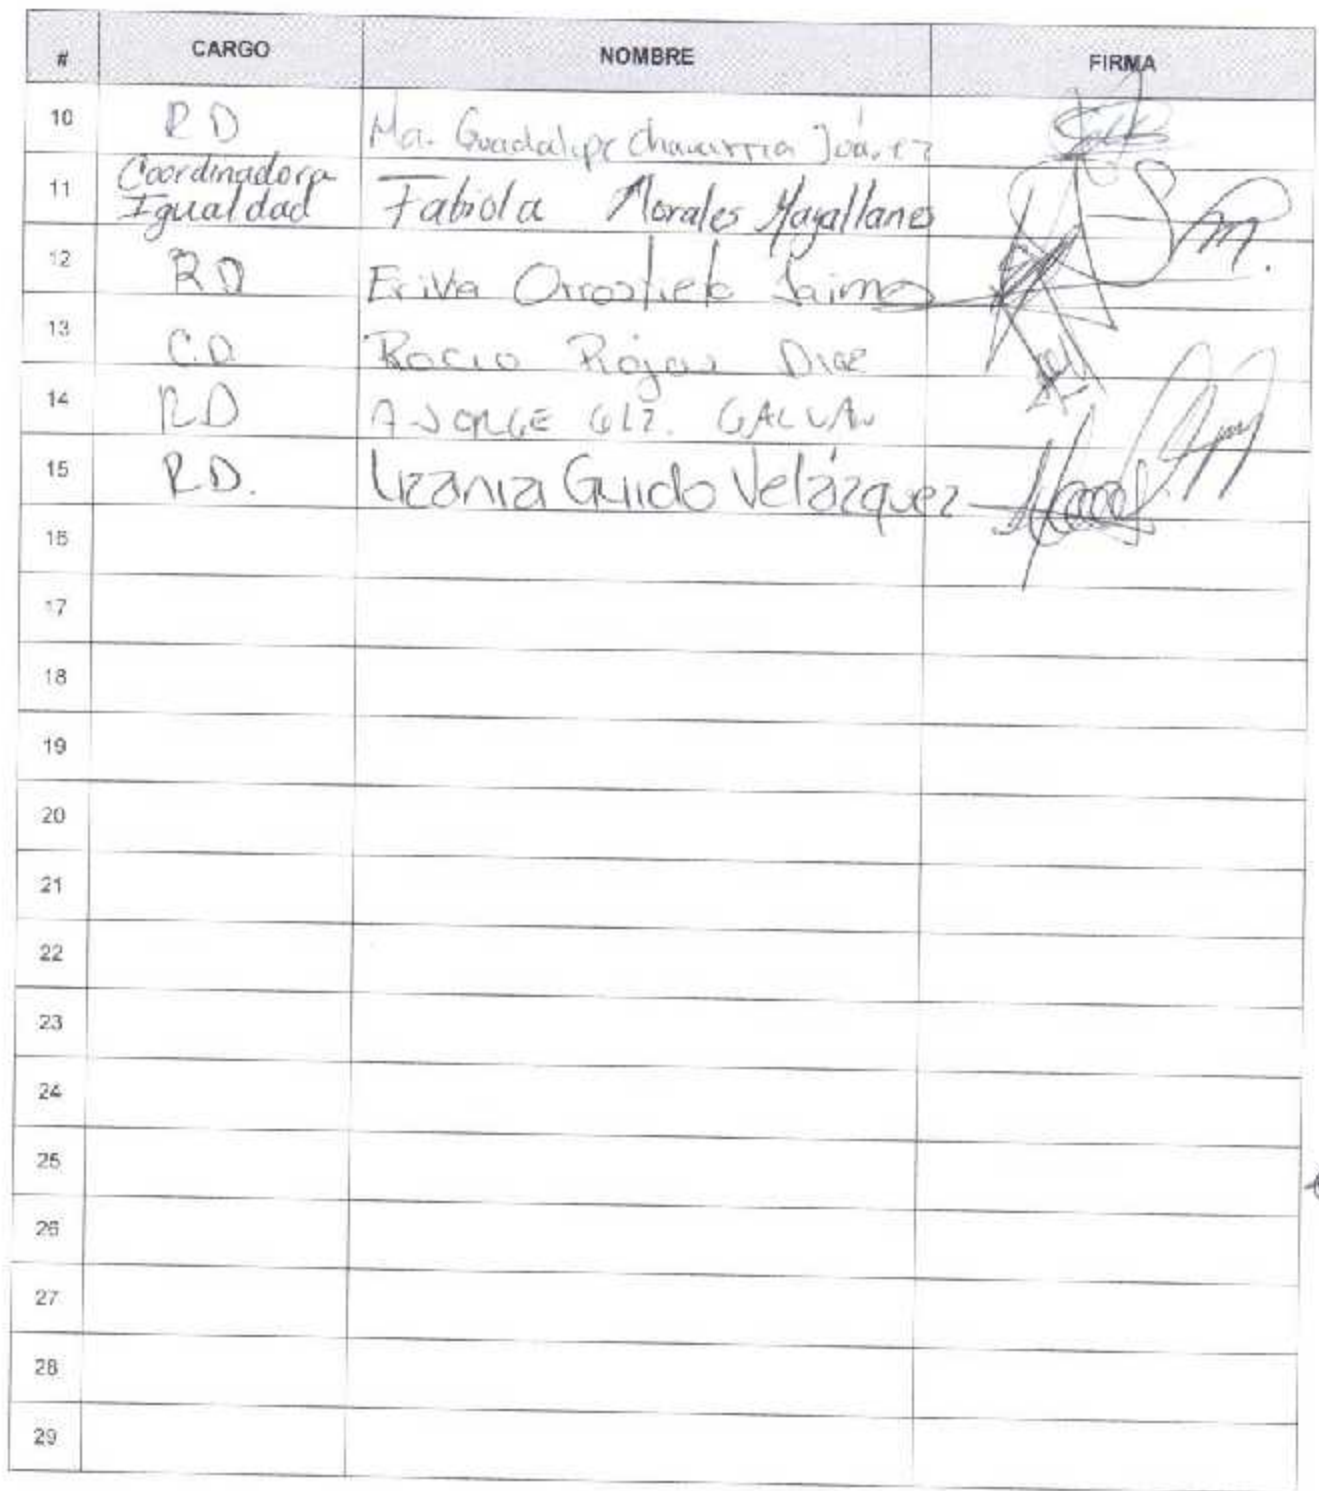 # CARGO NOMBRE FIRMA
10 R D Ma. Guadalupe Chavarria Juárez
11 Coordinadora Igualdad Fabiola Morales Magallanes
12 R D Erika Orrostieta Jaimes
13 C.D. Rocio Rojas Diaz
14 R.D A. JORGE GLZ. GALVAN
15 R.D. Lizania Guido Velázquez
16
17
18
19
20
21
22
23
24
25
26
27
28
29